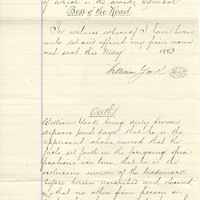 of which is the word, symbol
"Best of the Road.
In witness whereof I have here
unto set and affixed my firm name
and seal this May 1863
William
Oath
William being duly sworn
deposes and says that he is the
applicant above named that the
facts set forth in the foregoing spe-
are true, that he is the
exclusive owner of the trademark
before herein described and claimed
that no other person or